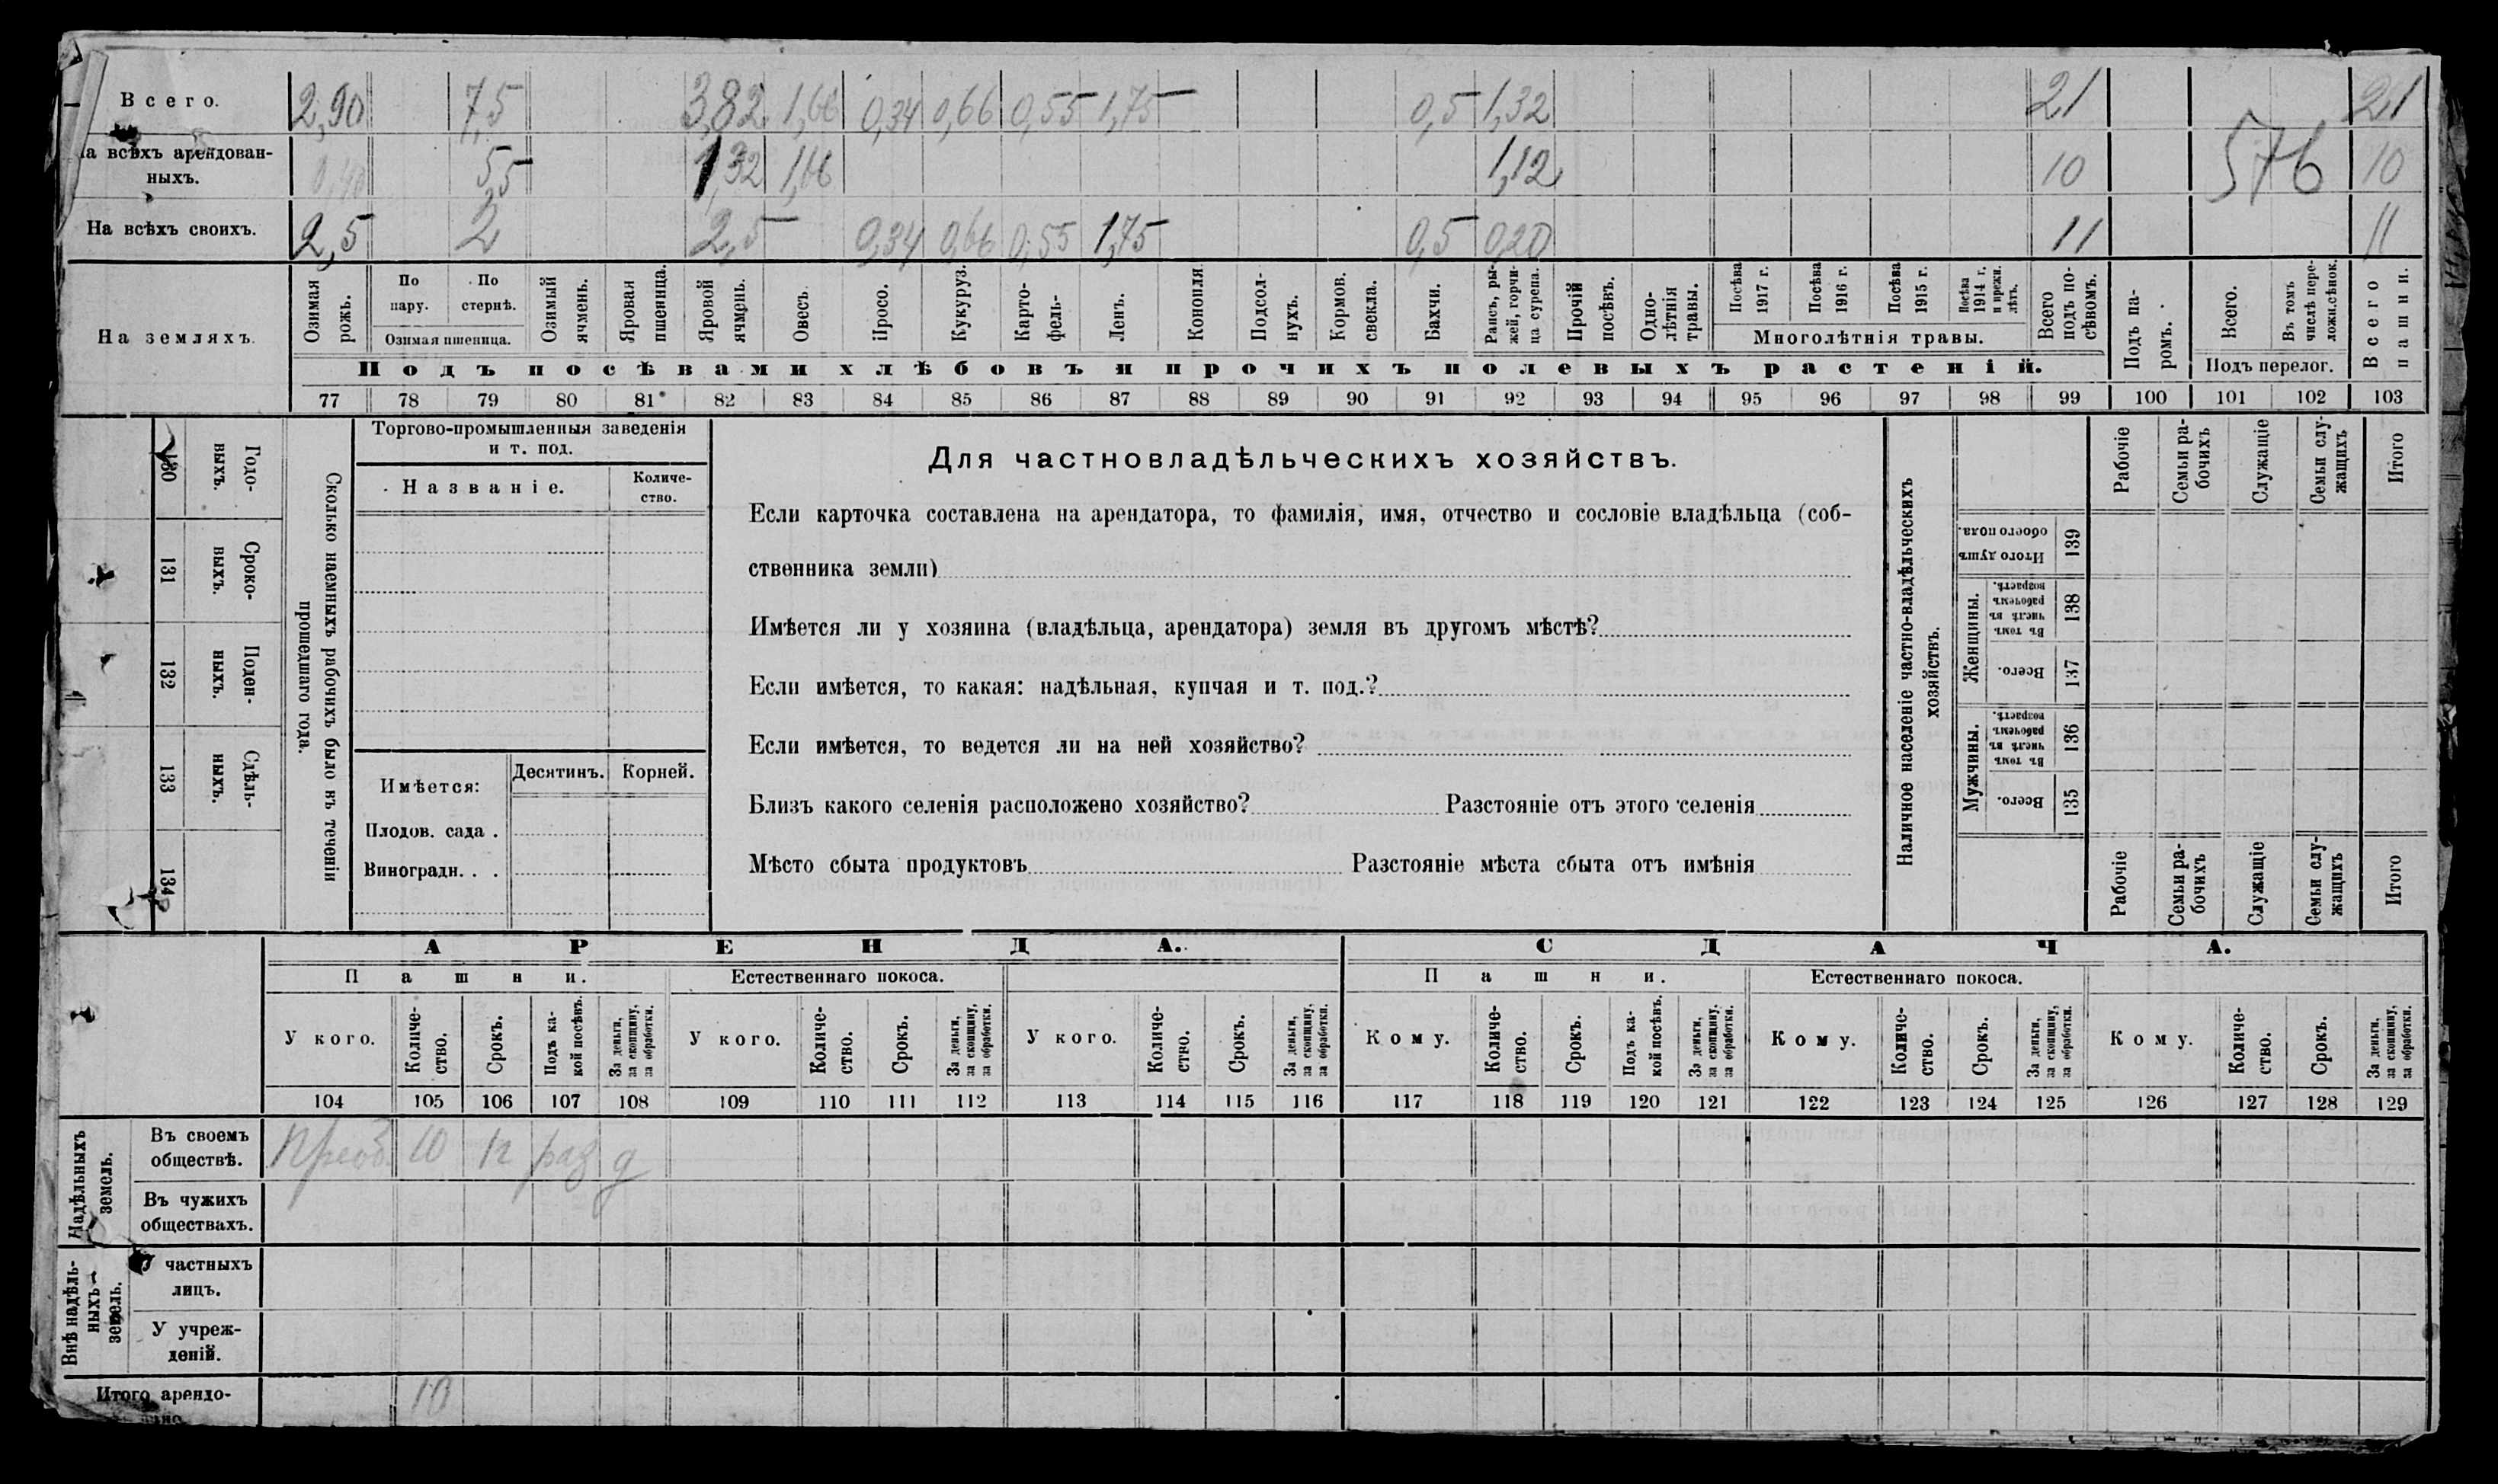 Всего. 2,90 7,5 3,82 1,66 0,34 0,66 0,55 1,75 0,5 1,32 21 21
на всѣхъ арендован-
ныхъ. 0,40 5,5 1,32 1,66 1,12 10 576 10
На всѣхъ своихъ. 2,5 2 2,5 0,34 0,66 0,55 1,75 0,5 0,20 11 11
На земляхъ.
Озимая рожь.
По пару.
По стернѣ.
Озимая пшеница.
Озимый ячмень.
Яровая пшеница.
Яровой ячмень.
Овесъ.
Просо.
Кукуруз.
Карто-
фель-
Ленъ.
Конопля.
Подсол-
нухъ.
Кормов.
свекла.
Бахчи.
Рапсъ, ры-
жей, горчи-
ца сурепа.
Прочій
посѣвъ.
Одно-
лѣтнія
травы.
Посѣва
1917 г.
Посѣва
1916 г.
Посѣва
1915 г.
Посѣва
1914 г.
и прежн.
лѣтъ.
Многолѣтнія травы.
Всего
подъ по-
сѣвомъ.
Подъ па-
ромъ.
Всего.
Въ томъ
числѣ пере-
ложн.сѣнок.
Подъ перелог.
Всего
пашни.
Подъ посѣвами хлѣбовъ и прочихъ полевыхъ растеній.
77 78 79 80 81 82 83 84 85 86 87 88 89 90 91 92 93 94 95 96 97 98 99 100 101 102 103
130 Годо-
выхъ.
131 Сроко-
ныхъ.
132 Поден-
ныхъ.
133 Сдѣль-
ныхъ.
134
Сколько наемныхъ рабочихъ было въ теченіи
прошедшаго года.
Торгово-промышленныя заведенія
и т. под.
Названіе.
Количе-
ство.
Имѣется:
Десятинъ. Корней.
Плодов. сада .
Виноградн. . .
Для частновладѣльческихъ хозяйствъ.
Если карточка составлена на арендатора, то фамилія, имя, отчество и сословіе владѣльца (соб-
ственника земли)
Имѣется ли у хозяина (владѣльца, арендатора) земля въ другомъ мѣстѣ?
Если имѣется, то какая: надѣльная, купчая и т. под.?
Если имѣется, то ведется ли на ней хозяйство?
Близъ какого селенія расположено хозяйство? Разстояніе отъ этого селенія
Мѣсто сбыта продуктовъ Разстояніе мѣста сбыта отъ имѣнія
Наличное населеніе частно-владѣльческихъ
хозяйствъ.
Рабочіе
Семьи ра-
бочихъ
Служащіе
Семьи слу-
жащихъ
Итого
Итого душъ
обоего пола.
139
Женщины.
Въ томъ
числѣ въ
рабочемъ
возрастѣ.
138
Всего.
137
Мужчины.
Въ томъ
числѣ въ
рабочемъ
возрастѣ.
136
Всего.
135
Рабочіе
Семьи ра-
бочихъ
Служащіе
Семьи слу-
жащихъ
Итого
АРЕНДА. СДАЧА.
Пашни. Естественнаго покоса. Пашни. Естественнаго покоса.
У кого.
Количе-
ство.
Срокъ.
Подъ ка-
кой посѣвъ.
За деньги,
за скопщину,
за обработки.
У кого.
Количе-
ство.
Срокъ.
За деньги,
за скопщину,
за обработки.
У кого.
Количе-
ство.
Срокъ.
За деньги,
за скопщину,
за обработки.
Кому.
Количе-
ство.
Срокъ.
Подъ ка-
кой посѣвъ.
За деньги,
за скопщину,
за обработки.
Кому.
Количе-
ство.
Срокъ.
За деньги,
за скопщину,
за обработки.
Кому.
Количе-
ство.
Срокъ.
За деньги,
за скопщину,
за обработки.
104 105 106 107 108 109 110 111 112 113 114 115 116 117 118 119 120 121 122 123 124 125 126 127 128 129
Надѣльныхъ
земель.
Въ своемъ
обществѣ. 10 раз д
Въ чужихъ
обществахъ.
Внѣ надѣль-
ныхъ
земель.
У частныхъ
лицъ.
У учреж-
деній.
Итого арендо-
10